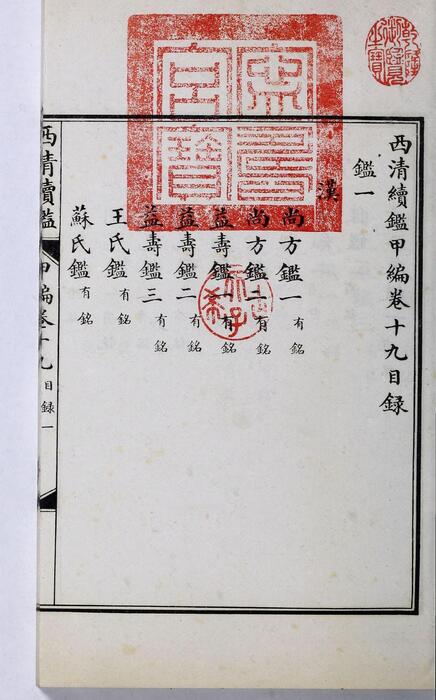 西清續鑑甲編卷十九目録
鑑一
漢
尚方鑑一有銘
尚方鑑二有銘
益壽鑑一有銘
益壽鑑二有銘
益壽鑑三有銘
王氏鑑有銘
蘇氏鑑有銘
西清續鑑 甲編卷十九目録 一